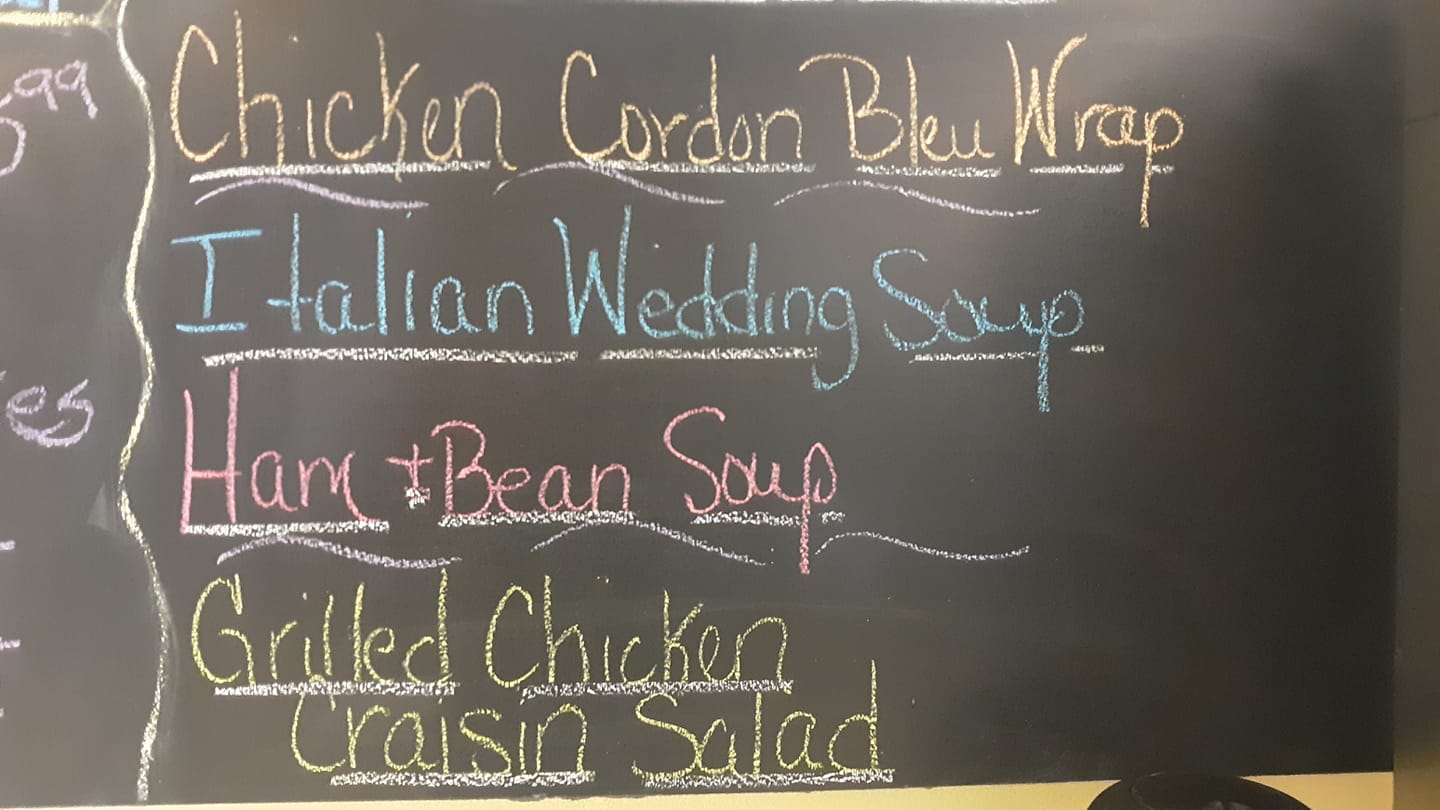 Chicken Cordon Bleu Wrap
Italian Wedding Soup
Ham + Bean Soup
Grilled Chicken
Craisin Salad